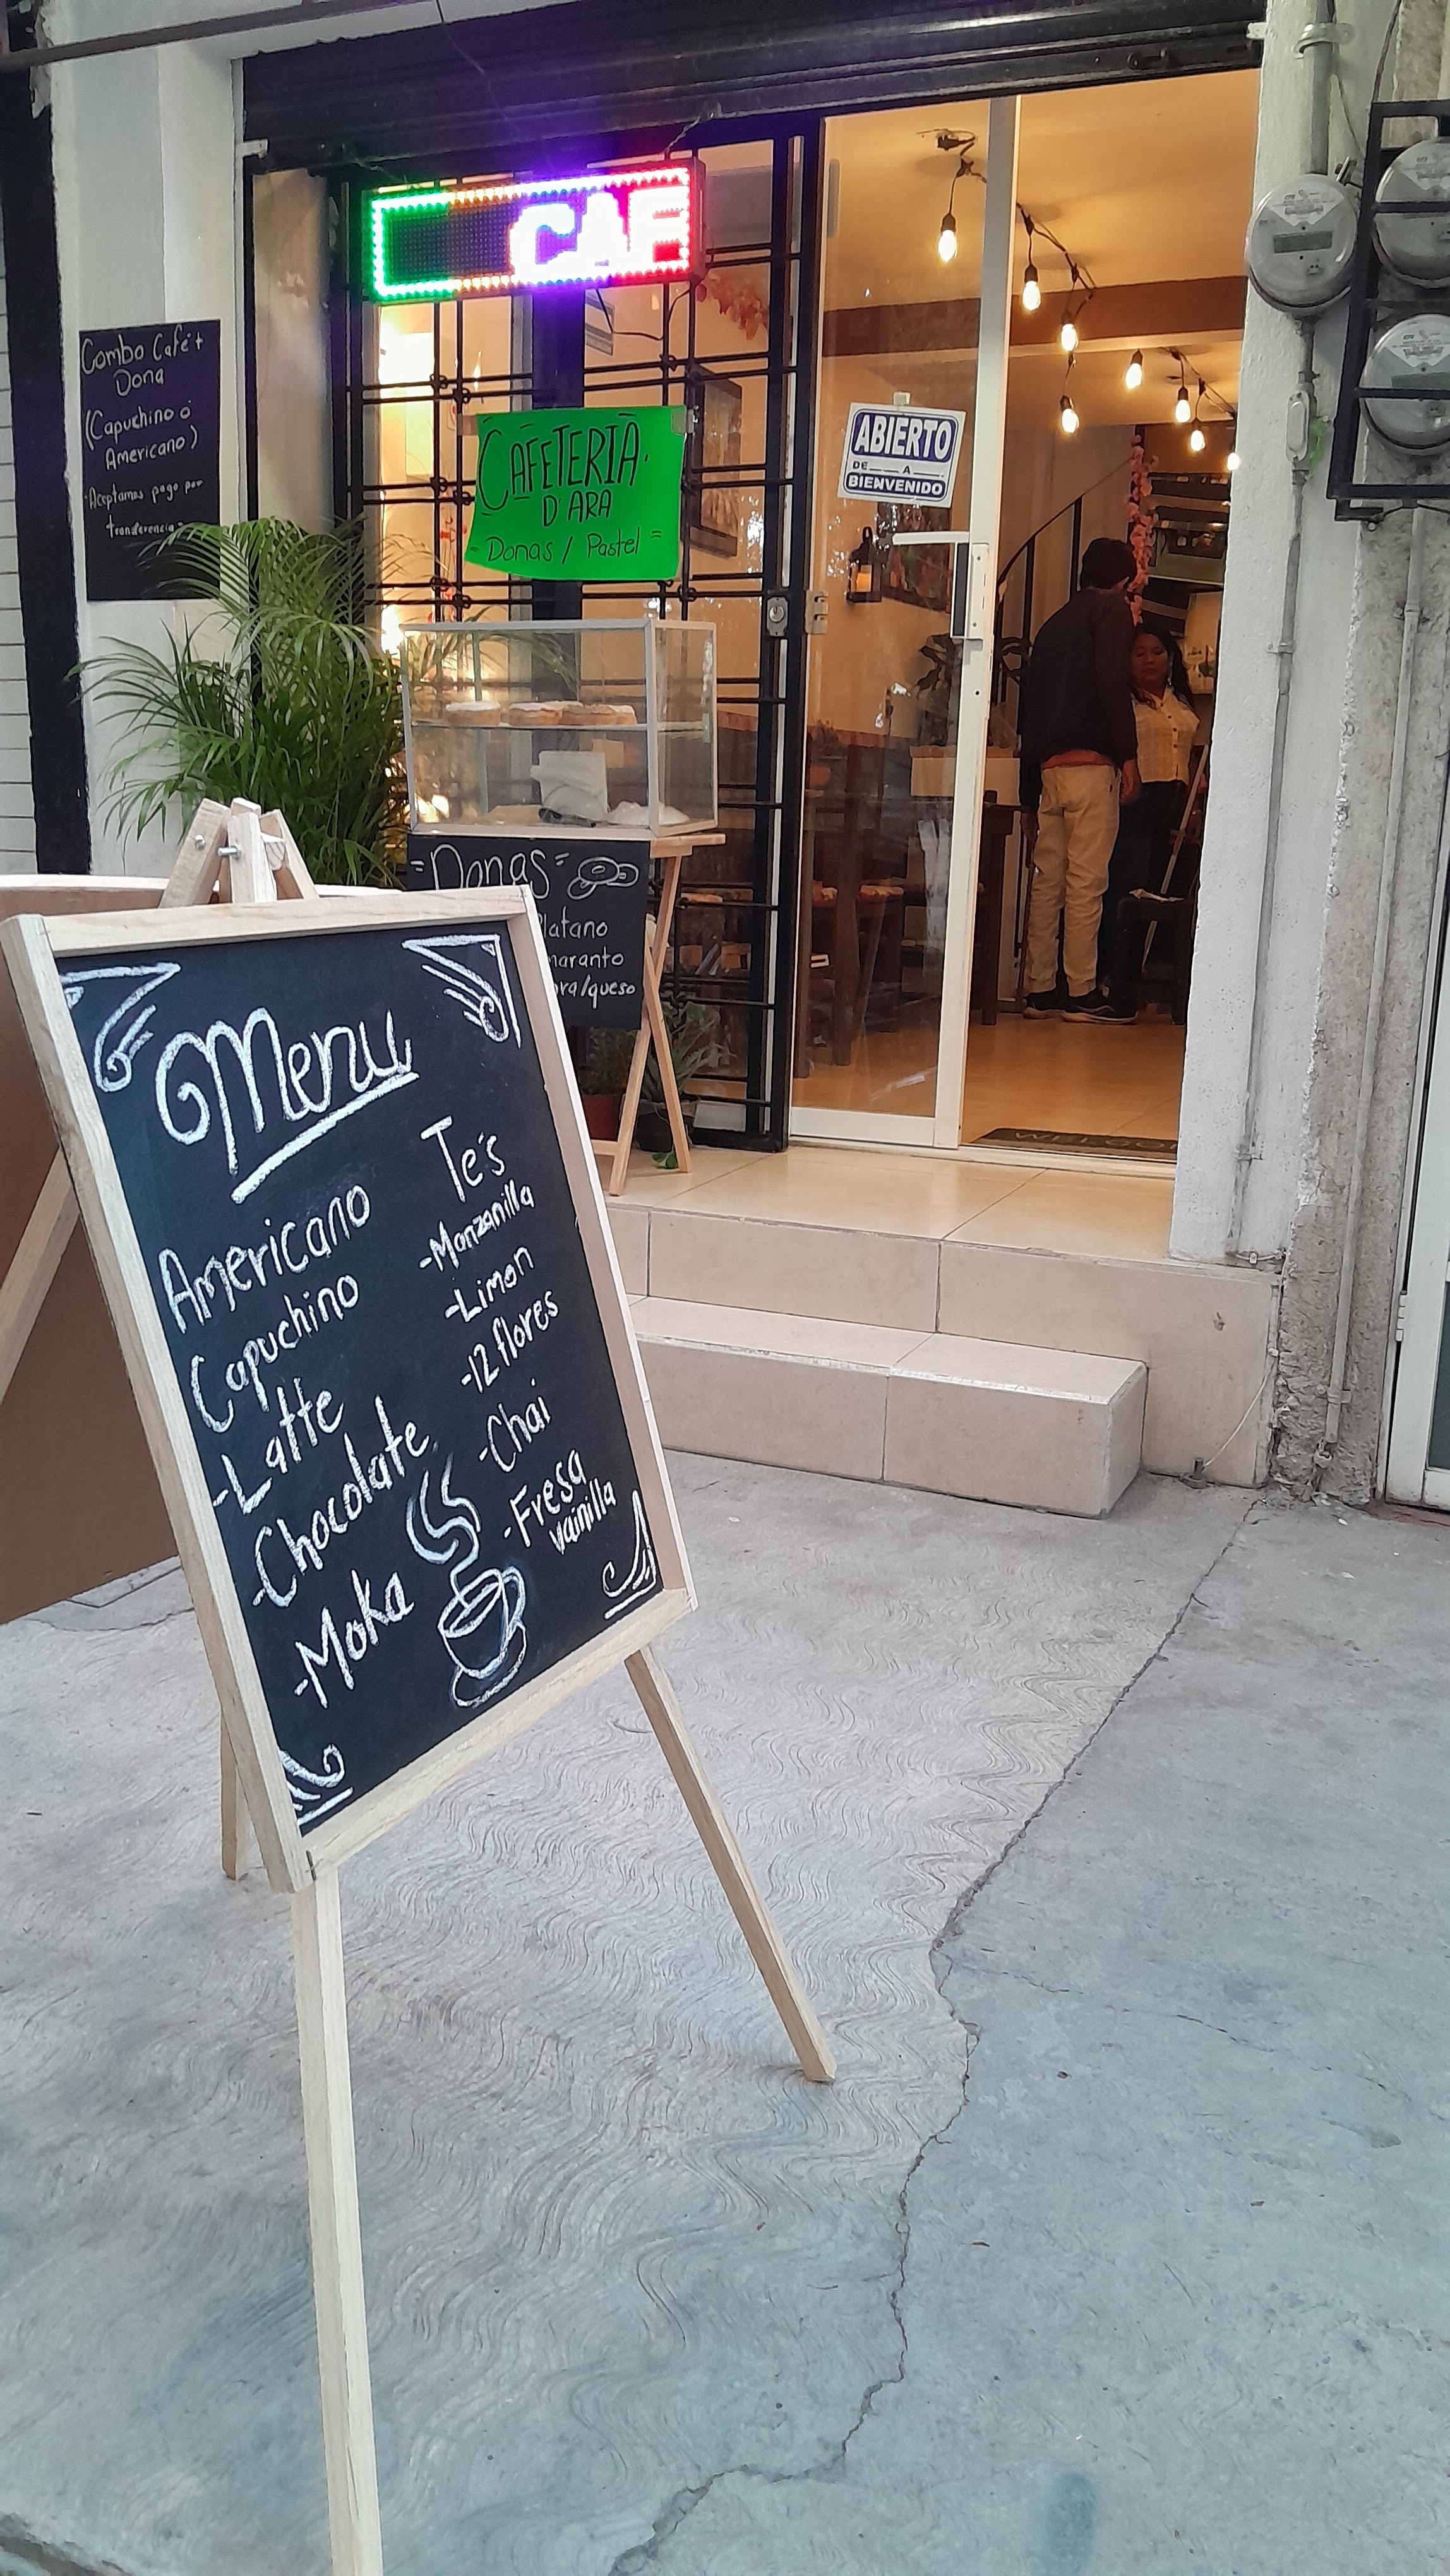 CAF
Combo Café +
Dona
(Capuchino ó
Americano)
Aceptamos pago por
transferencia
CAFETERIA
D'ARA
- Donas / Pastel =
ABIERTO
DE A
BIENVENIDO
=Donas=
/queso
Menu
Americano
Capuchino
-Latte
-Chocolate
-Moka
Te's
-Manzanilla
-Limon
-12 flores
-Chai
-Fresa
vainilla